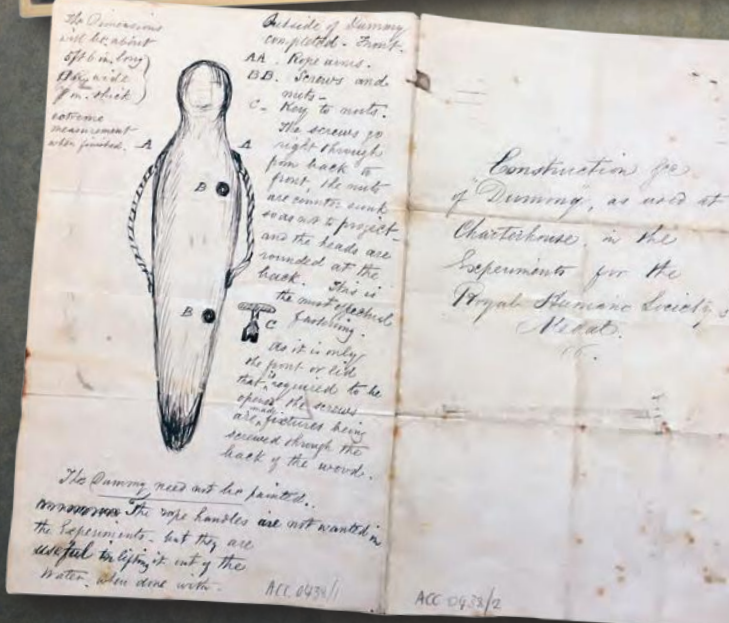 The Dimensions
will be about
5ft 6 in. long
wide
7 in. thick
extreme
measurement
when finished.
Outside of Dummy
completed - Front.
AA. Rope arms.
BB. Screws and
nuts -
C - Key to nuts.
The screws go
right through
from back to
front, the nuts
are counter sunk
so as not to project -
and the heads are
rounded at the
back. This is
the most effectual
fastening.
As it is only
the front or lid
that is required to be
opened the screws
are made fixtures being
screwed through the
back of the wood.
A
A
B
B
C
The Dummy need not be painted.
The rope handles are not wanted in
the Experiments - but they are
useful in lifting it out of the
Water, when done with.
ACC 0438/1
Construction &c
of "Dummy", as used at
Charterhouse, in the
Experiments for the
Royal Humane Society's
Medal.
ACC 0438/2